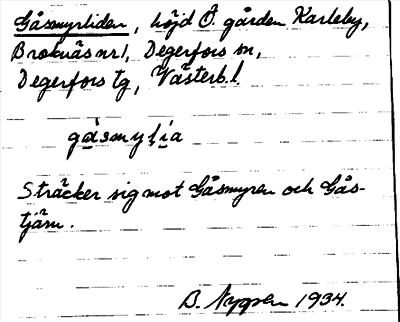 Gåsmyrliden, höjd Ö. gården Karleby,
Broknäs nr 1, Degerfors sn,
Degerfors tg, Västerb. l.
gåsmyḷia
Sträcker sig mot Gåsmyren och Gås-
tjärn.
B. Nygren 1934.